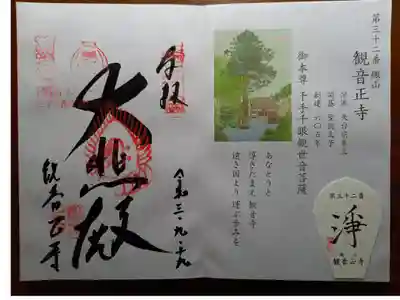 第三十二番 繖山
観音正寺
開基 聖徳太子
創建 六〇五年
御本尊 千手千眼観世音菩薩
あなとうと
導きたまえ 観音寺
遠き国より 運ぶ歩みを
第三十二番
淨
観音正寺
奉拝
大悲殿
観音正寺